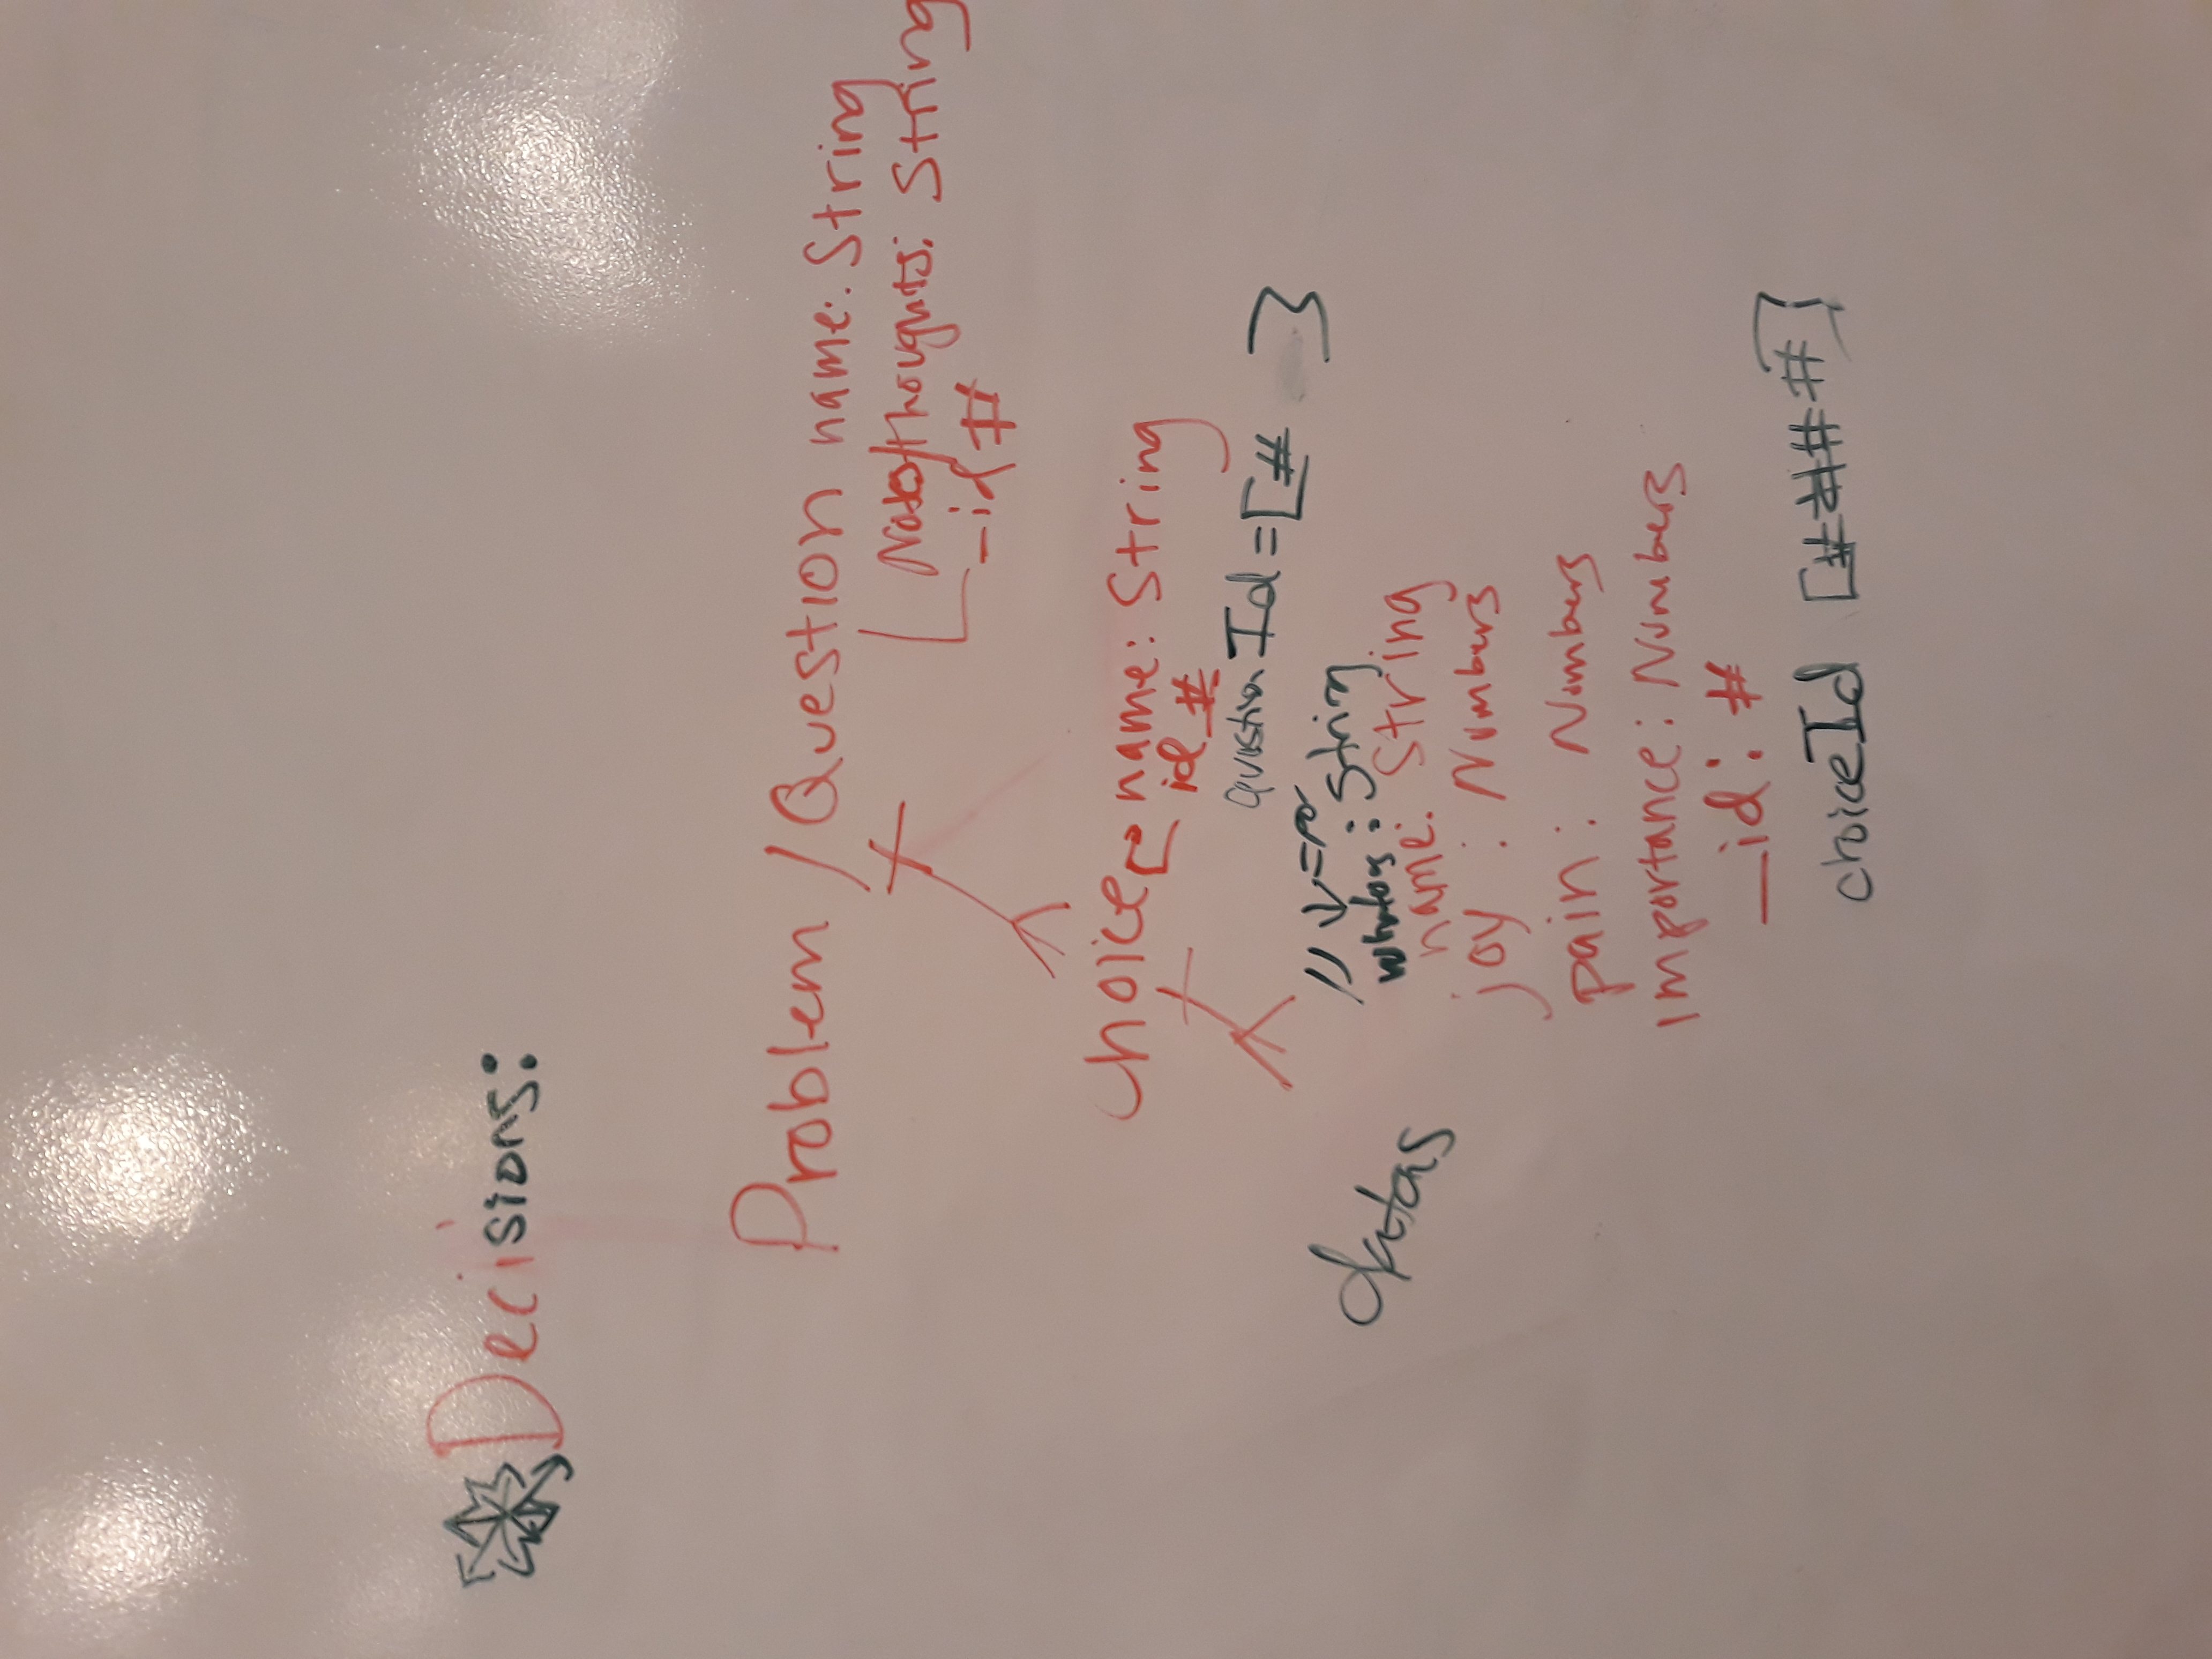 Decisions:
Problem / Question name: String
Notes/thoughts: String
_id #
choice name: String
id #
questionId = [# ]
// ↓ =
: String
datas
name: String
joy : Numbers
pain: Numbers
importance: Numbers
_id: #
choiceId [# # # #]